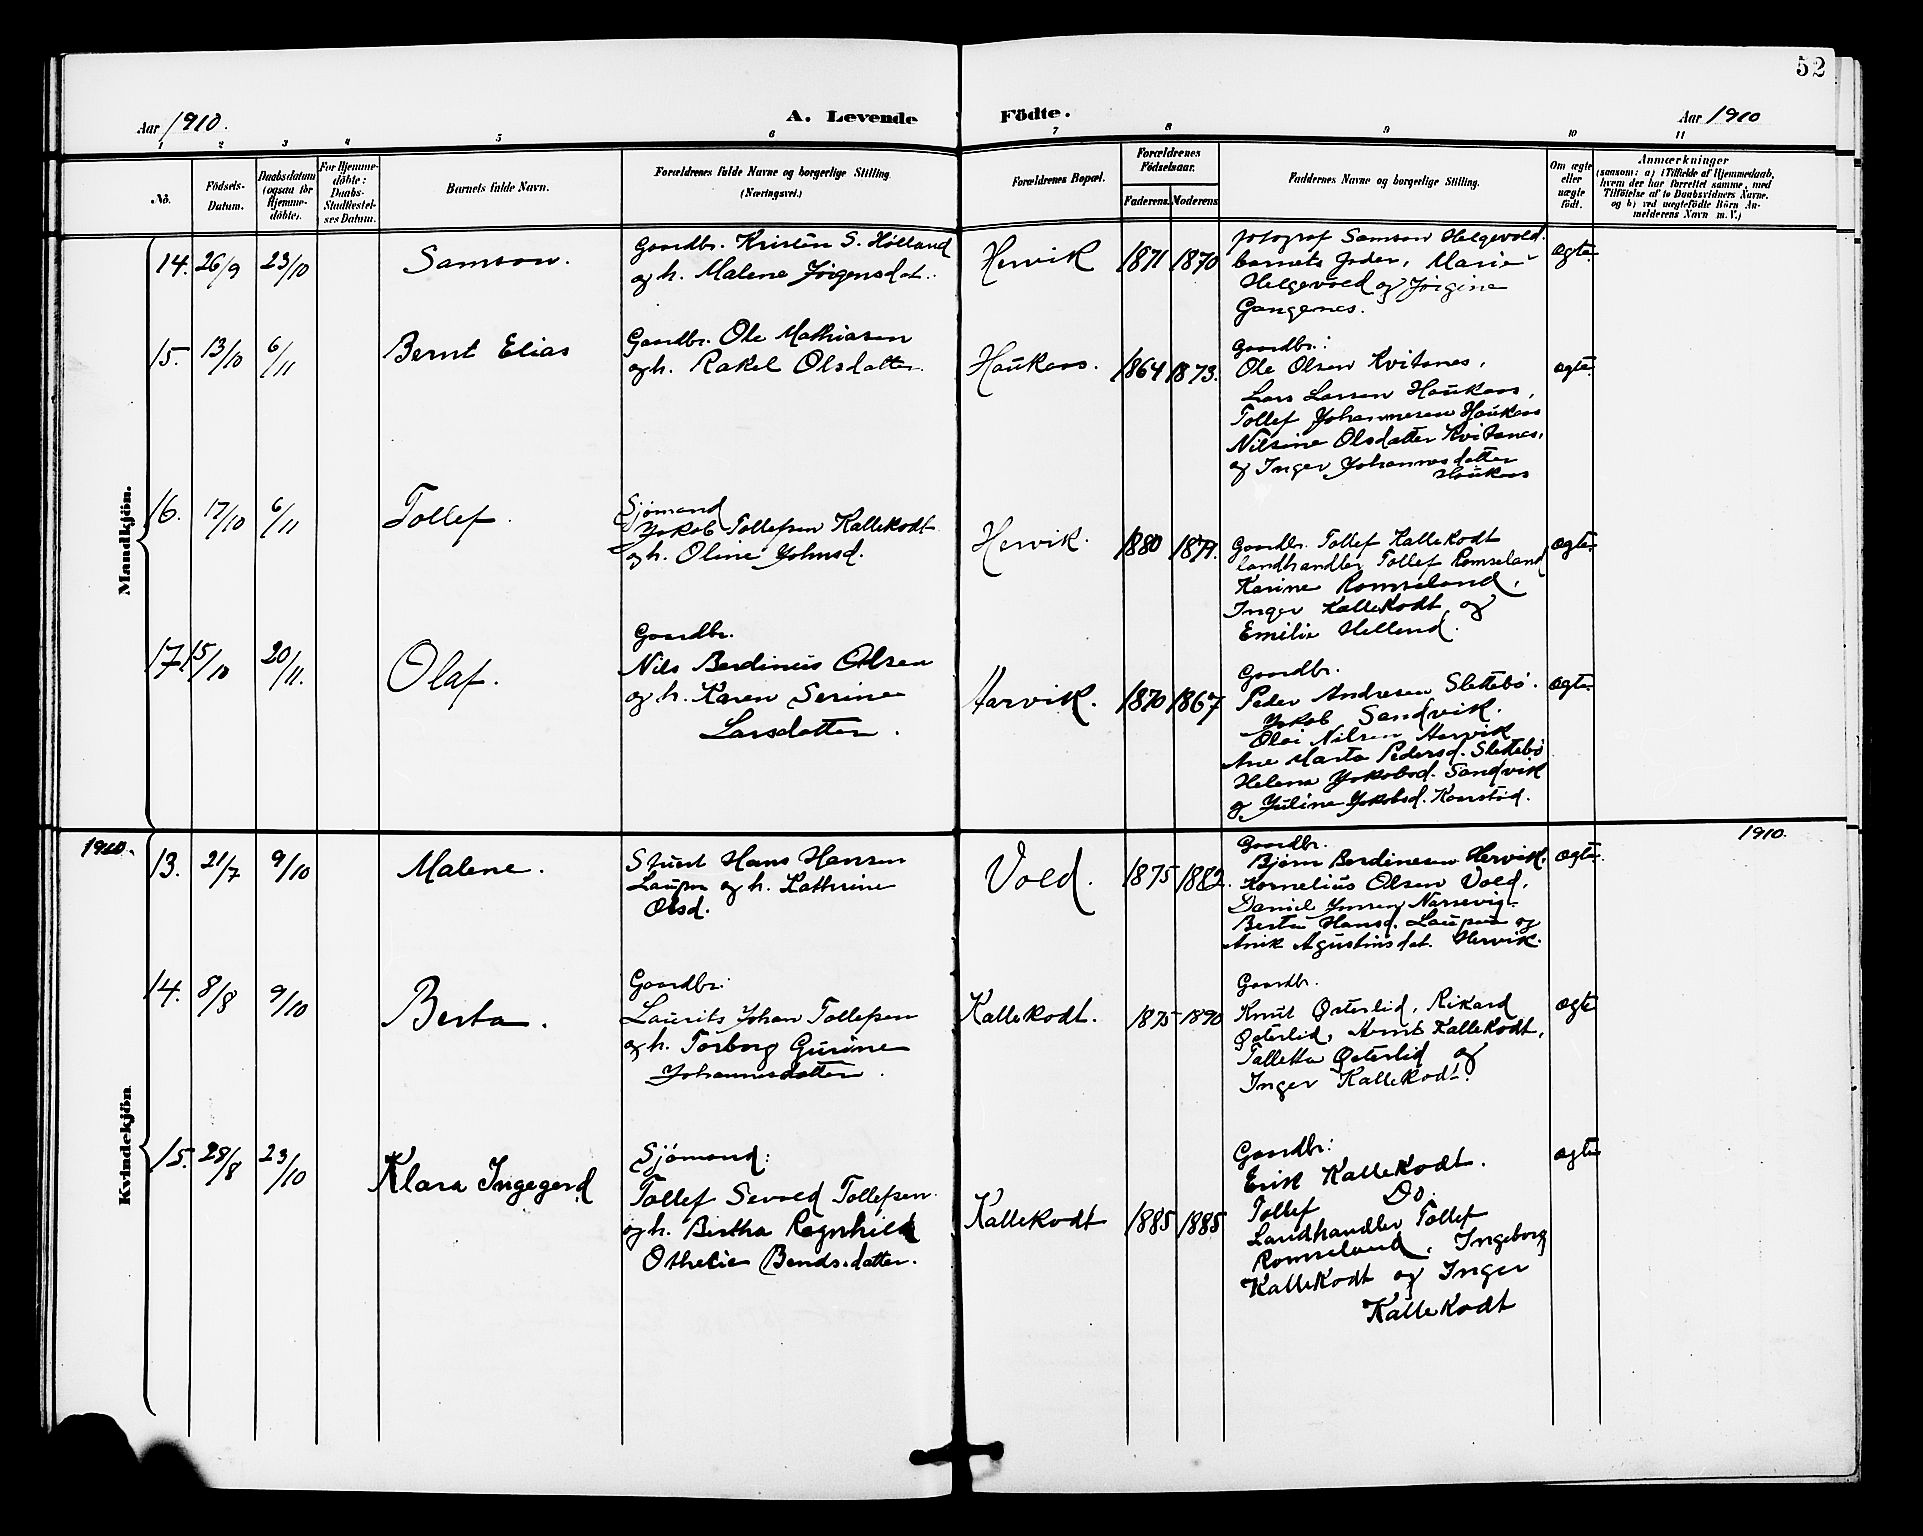 52
Aar 1910.
A. Levende Födte.
Aar 1910
1 2 3 4 5 6 7 8 9 10 11
No.
Födsels-Datum.
Daabsdatum (ogsaa for Hjemme-döbte).
For Hjemme-döbte: Daabs-Stadfæstel-ses Datum.
Barnets fulde Navn.
Forældrenes fulde Navne og borgerlige Stilling. (Næringsvei.)
Forældrenes Bopæl.
Forældrenes Födselsaar.
Faderens. Moderens
Faddernes Navne og borgerlige Stilling.
Om ægte eller uægte födt.
Anmærkninger
(saasom: a) i Tilfælde af Hjemmedaab,
hvem der har forrettet samme, med
Tilföielse af to Daabsvidners Navne.
og b) ved uægtefödte Börn An-
melderens Navn m. V.)
Mandkjön.
14. 26/9 23/10 Samson.
Gaardbr. Kristen S. Hølland
og h. Malene Jørgensdat.
Hervik 1871 1870
fotograf Samson Helgevold.
barnets fader, Marie
Helgevold og Jørgine
Gangenes.
ægte
15. 13/10 6/11 Bernt Elias
Gaardbr. Ole Mathiasen
og h. Rakel Olsdatter
Haukaas. 1864 1873.
Gaardbr.:
Ole Olsen Kvitanes,
Lars Larsen Haukaas,
Tollef Johannesen Haukaas
Nilsine Olsdatter Kvitanes,
og Inger Johannesdatter
Haukaas
ægte
16. 17/10 6/11 Tollef.
Sjømand
Jakob Tollefsen Kallekodt
og h. Oline Johnsd.
Hervik. 1880
Gaardbr. Tollef Kallekodt
landhandler Tollef Romseland
Karine Romseland,
Inger Kallekodt og
Emilie Helland.
ægte
17. 15/10 20/11. Olaf.
Gaardbr.
Nils Berdinius Olsen
og h. Karen Serine
Larsdatter.
Aarvik. 1870 1867
Gaardbr.
Peder Andresen Slettebø.
Jakob Sandvik.
Olai Nilsen Aarvik
Ane Marta Pedersd. Slettebø
Helena Jakobsd. Sandvik
og Juline Jakobsd.
ægte
1910.
1910.
Kvindekjön
13. 21/7 9/10 Malene.
Hans Hansen
og h. Kathrine
Olsd.
Vold. 1875 1882.
Gaardbr.
Bjørn Berdinesen Hervik,
Kornelius Olsen Vold,
Daniel
Berta Hansd. og
Agustinsdat. Hervik.
ægte.
14. 8/8 9/10 Berta.
Gaardbr.
Laurits Johan Tollefsen
og h. Torborg Gurine
Johannesdatter.
Kallekodt. 1875
Gaardbr.
Knut Østerlid, Rikard
Østerlid, Kallekodt,
Talletta Østerlid og
Inger Kallekodt.
ægte
15. 28/8 23/10 Klara Ingegerd
Sjømand:
Tollef Sevald Tollefsen
og h. Bertha Regnhild
Othelie Bendsdatter.
Kallekodt 1885 1885
Gaardbr:
Erik Kallekodt.
Tollef Do.
Landhandler Tollef
Romseland, Ingeborg
Kallekodt og Inger
Kallekodt
ægte